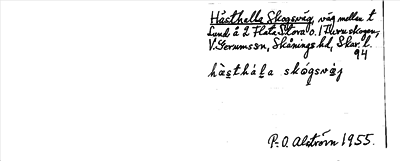 Hästhalla Skogsväg, väg mellan t
Lund å 2 Flata Stora o. 1 Furuskogen,
V. Gerumssn, Skånings hd, Skar. l.
94
hàstháLa skógsvàj
P.O. Alström 1955.